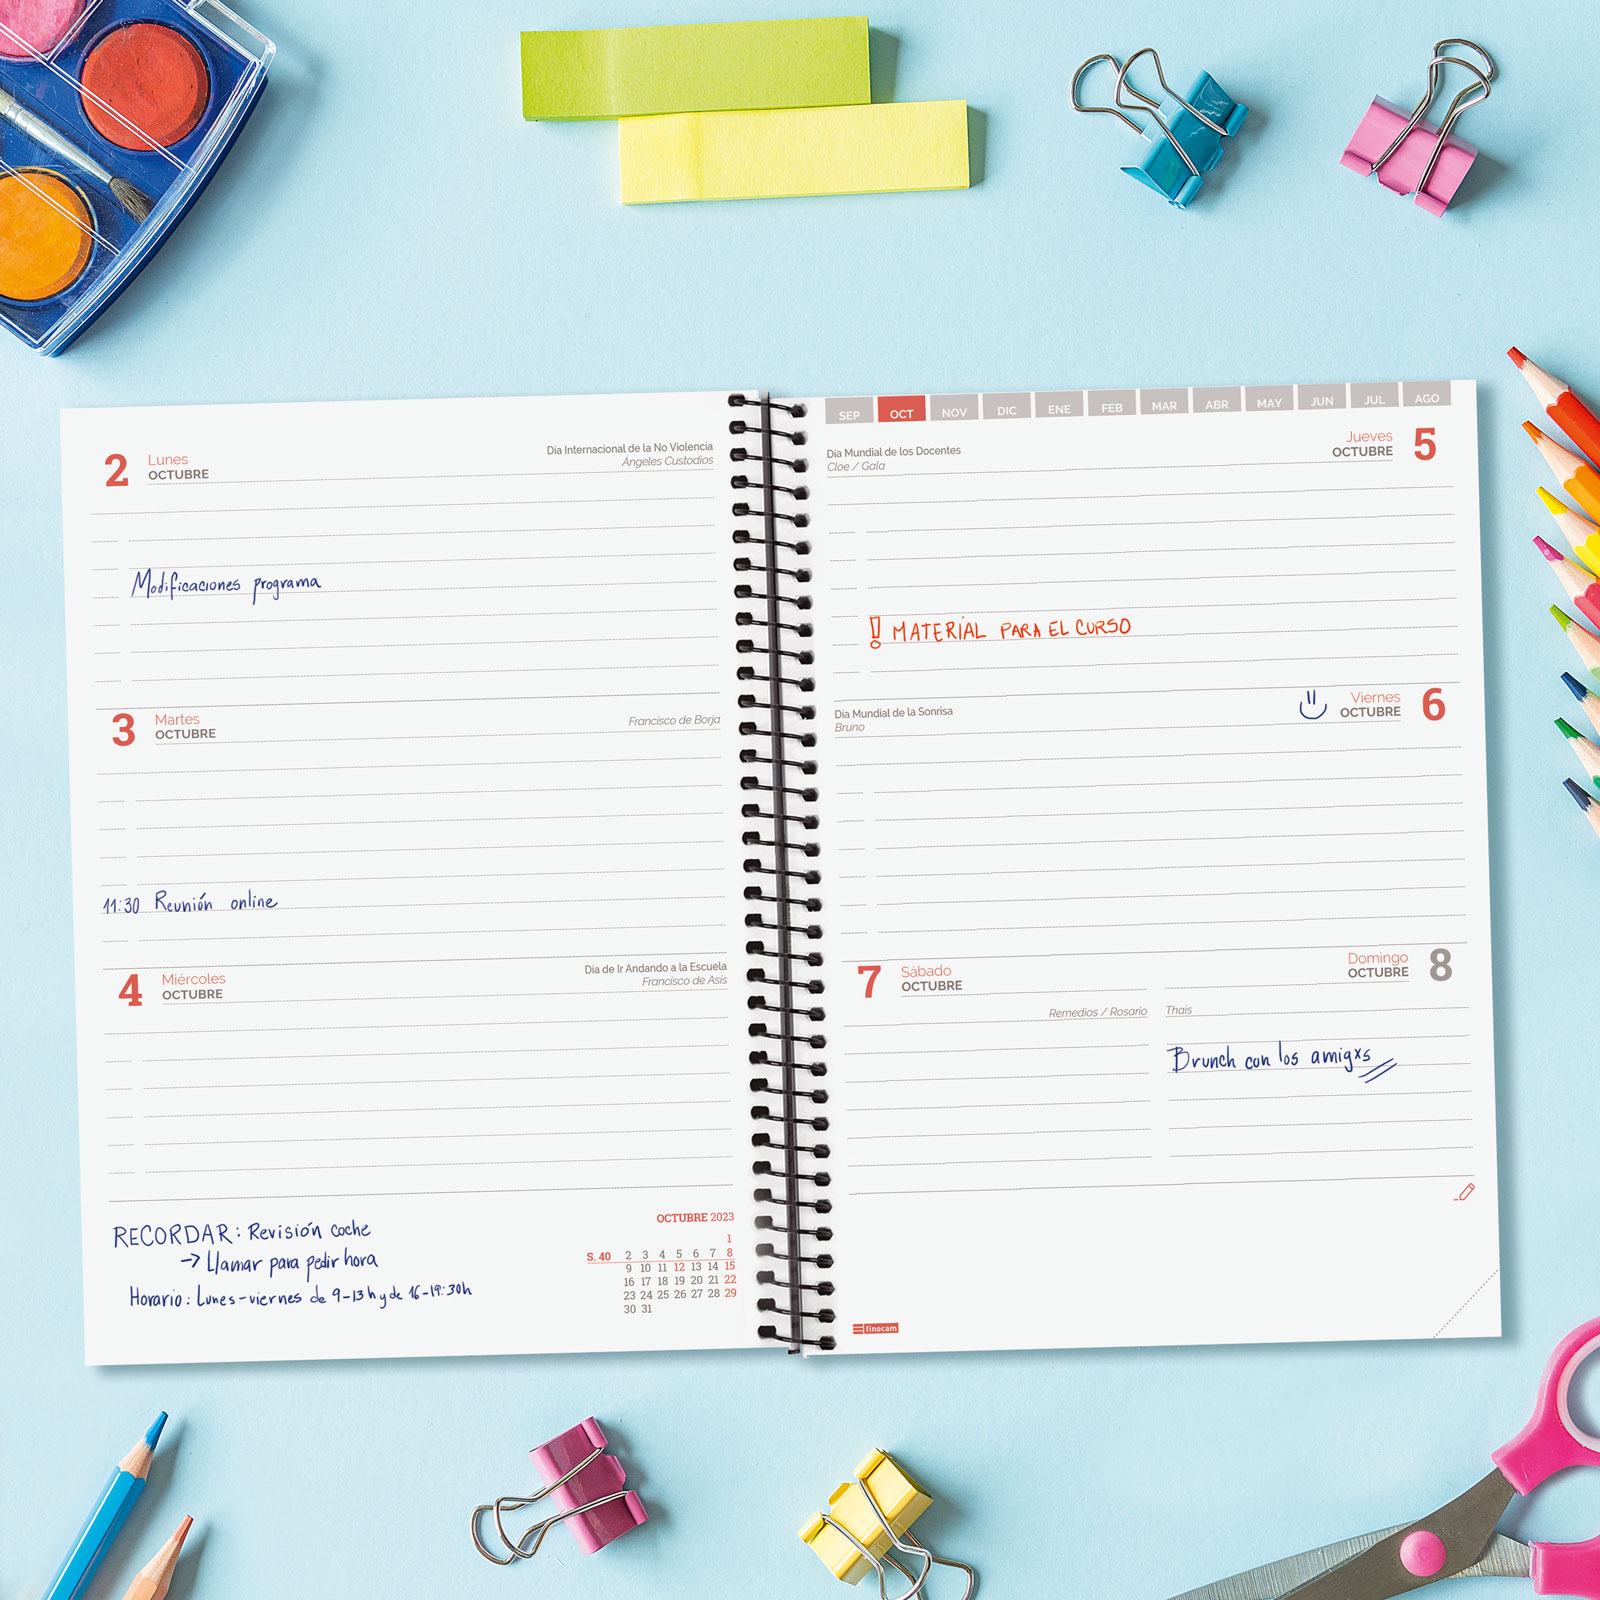 2 Lunes
OCTUBRE
Día Internacional de la No Violencia
Ángeles Custodios
Modificaciones programa
3 Martes
OCTUBRE
Francisco de Borja
11:30 Reunión online
4 Miércoles
OCTUBRE
Día de Ir Andando a la Escuela
Francisco de Asís
RECORDAR: Revisión coche
→ Llamar para pedir hora
Horario: Lunes-viernes de 9-13h y de 16-19:30h
OCTUBRE 2023
1
S. 40 2 3 4 5 6 7 8
9 10 11 12 13 14 15
16 17 18 19 20 21 22
23 24 25 26 27 28 29
30 31
SEP OCT NOV DIC ENE FEB MAR ABR MAY JUN JUL AGO
Día Mundial de los Docentes
Cloe / Gala
Jueves 5
OCTUBRE
! MATERIAL PARA EL CURSO
Día Mundial de la Sonrisa
Bruno
Viernes 6
OCTUBRE
7 Sábado
OCTUBRE
Remedios / Rosario
Domingo 8
OCTUBRE
Thais
Brunch con los amigxs
finocam